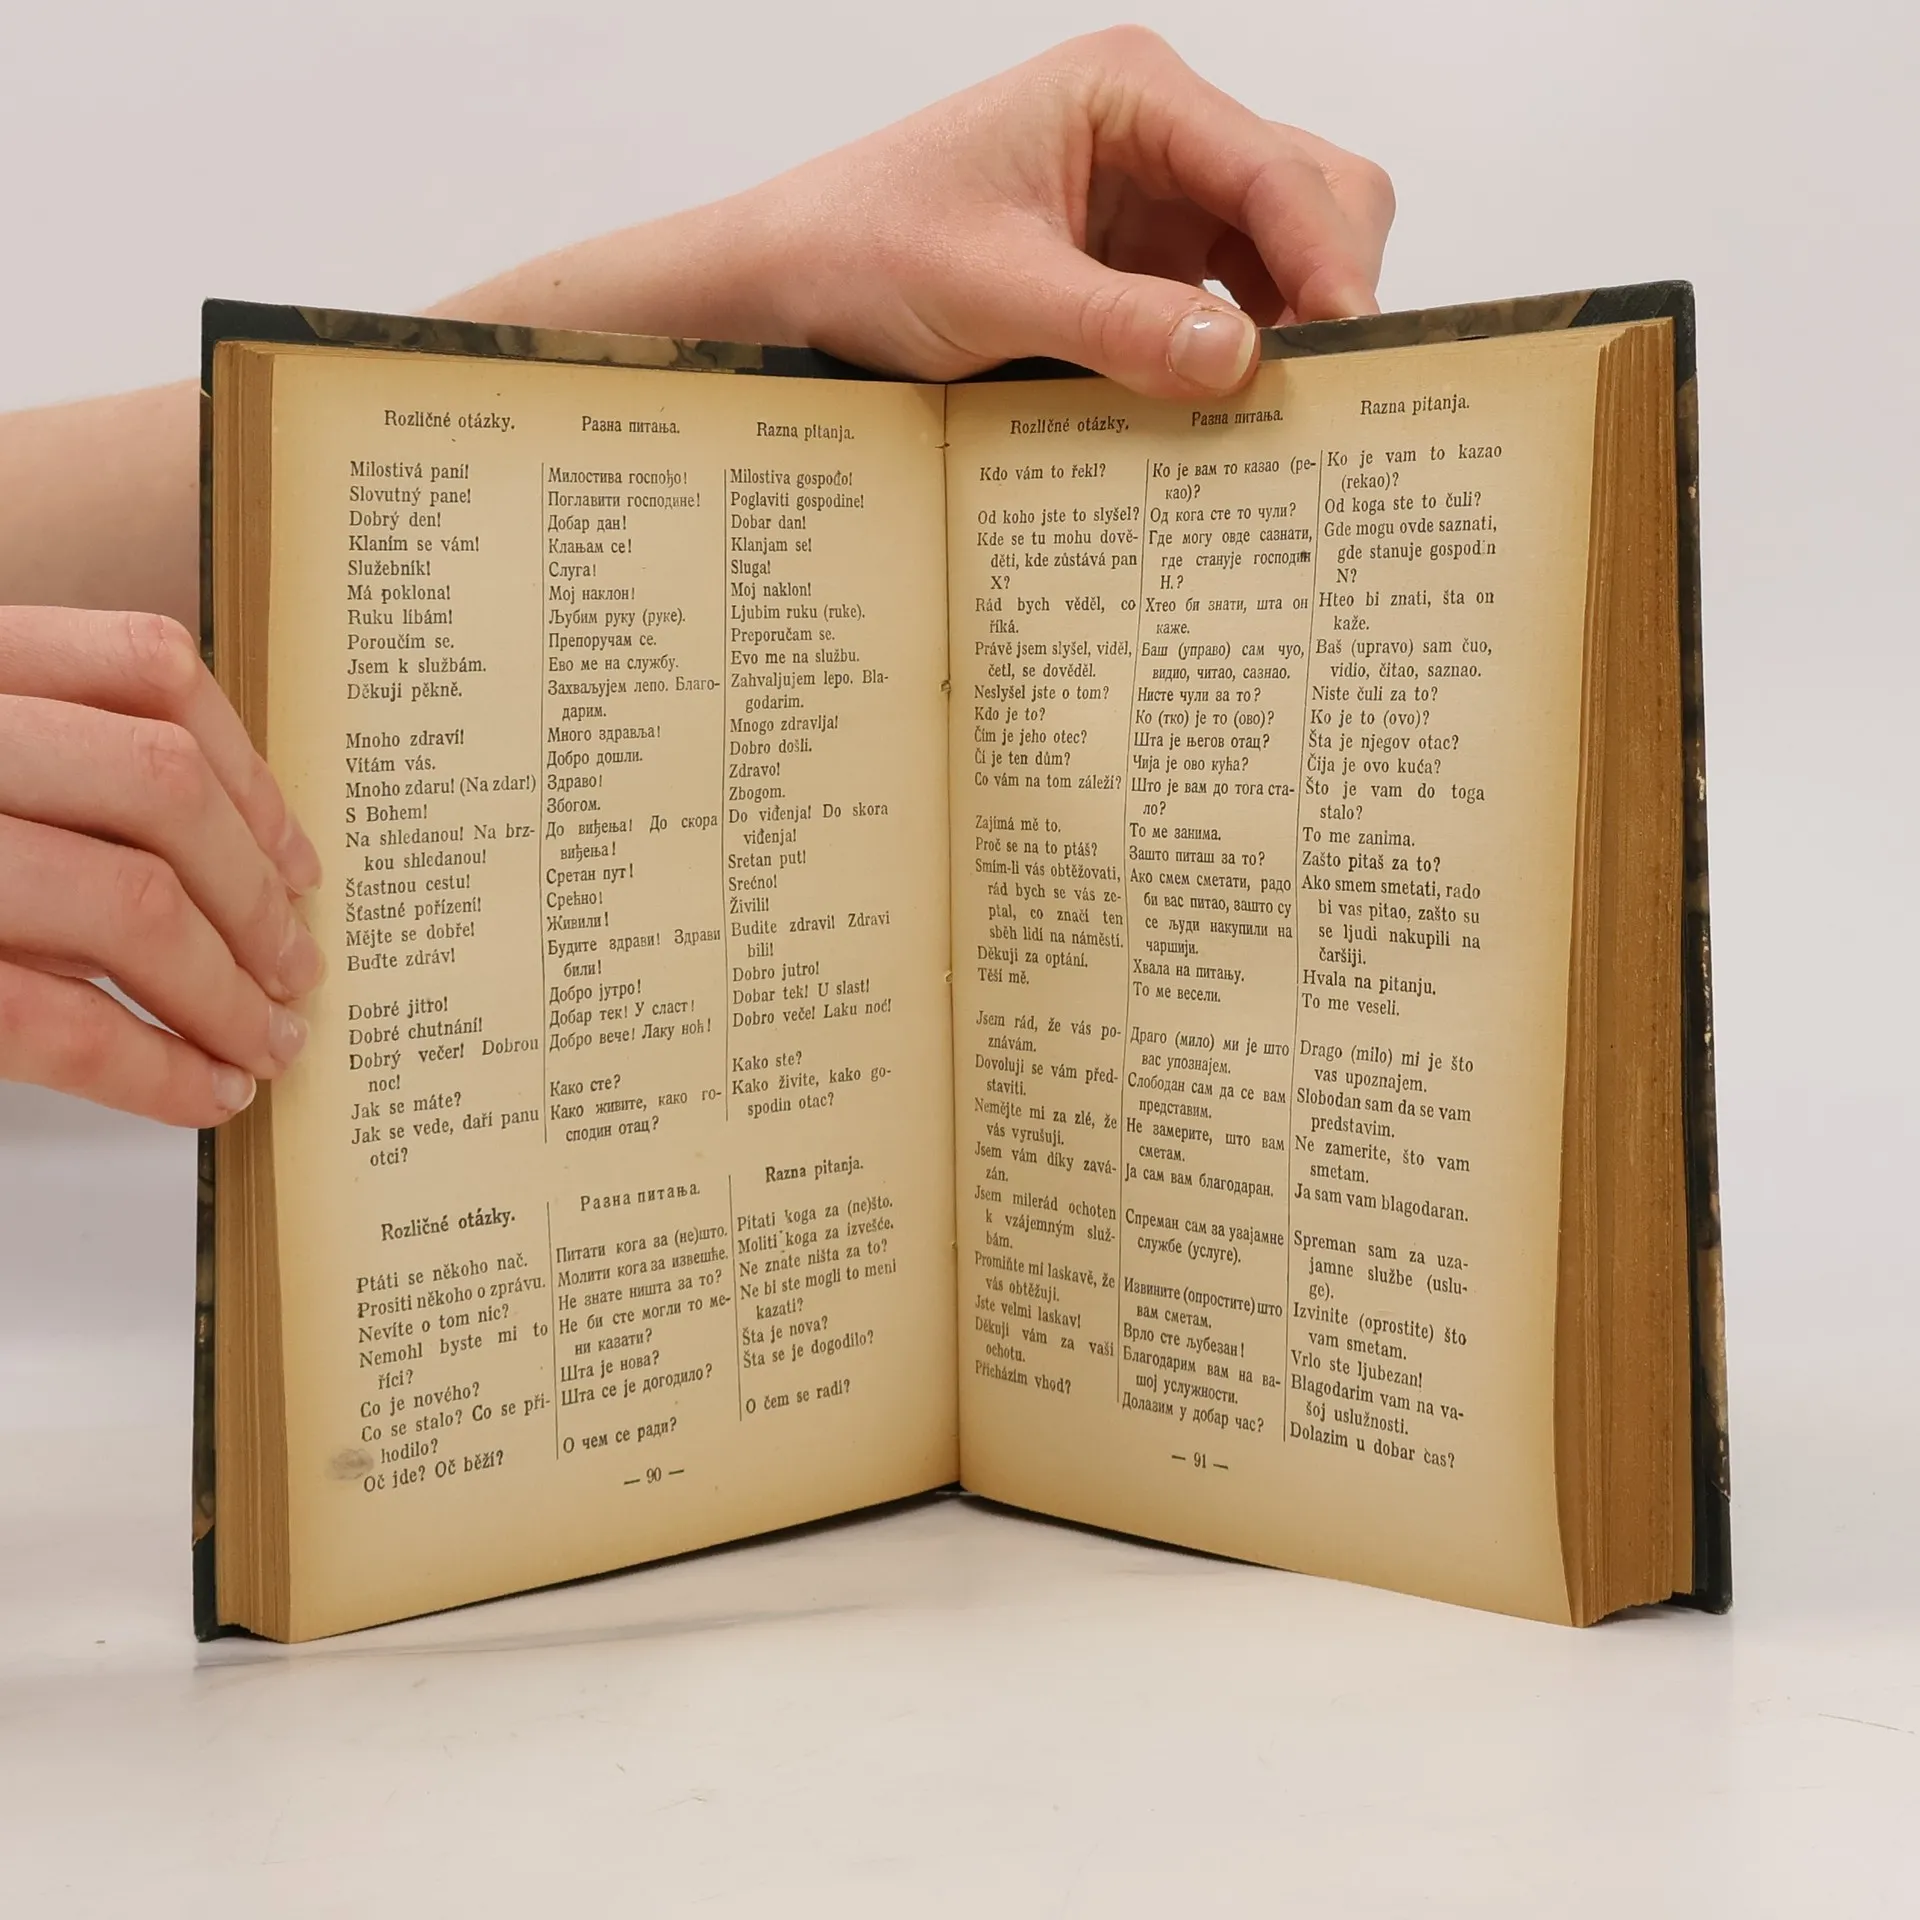 Rozličné otázky.
Milostivá paní!
Slovutný pane!
Dobrý den!
Klaním se vám!
Služebník!
Má poklona!
Ruku líbám!
Poroučím se.
Jsem k službám.
Děkuji pěkně.
Mnoho zdraví!
Vítám vás.
Mnoho zdaru! (Na zdar!)
S Bohem!
Na shledanou! Na brz-
kou shledanou!
Šťastnou cestu!
Šťastné pořízení!
Mějte se dobře!
Buďte zdráv!
Dobré jitro!
Dobré chutnání!
Dobrý večer! Dobrou
noc!
Jak se máte?
Jak se vede, daří panu
otci?
Rozličné otázky.
Ptáti se někoho nač.
Prositi někoho o zprávu.
Nevíte o tom nic?
Nemohl byste mi to
říci?
Co je nového?
Co se stalo? Co se při-
hodilo?
Oč jde? Oč běží?
Разна питања.
Милостива госпођо!
Поглавити господине!
Добар дан!
Клањам се!
Слуга!
Мој наклон!
Љубим руку (руке).
Препоручам се.
Ево ме на службу.
Захваљујем лепо. Благо-
дарим.
Много здравља!
Добро дошли.
Здраво!
Збогом.
До виђења! До скора
виђења!
Сретан пут!
Срећно!
Живили!
Будите здрави! Здрави
били!
Добро јутро!
Добар тек! У сласт!
Добро вече! Лаку ноћ!
Како сте?
Како живите, како го-
сподин отац?
Разна питања.
Питати кога за (не)што.
Молити кога за извешће.
Не знате ништа за то?
Не би сте могли то ме-
ни казати?
Шта је нова?
Шта се је догодило?
О чем се ради?
Razna pitanja.
Milostiva gospođo!
Poglaviti gospodine!
Dobar dan!
Klanjam se!
Sluga!
Moj naklon!
Ljubim ruku (ruke).
Preporučam se.
Evo me na službu.
Zahvaljujem lepo. Bla-
godarim.
Mnogo zdravlja!
Dobro došli.
Zdravo!
Zbogom.
Do viđenja! Do skora
viđenja!
Sretan put!
Srećno!
Živili!
Budite zdravi! Zdravi
bili!
Dobro jutro!
Dobar tek! U slast!
Dobro veče! Laku noć!
Kako ste?
Kako živite, kako go-
spodin otac?
Razna pitanja.
Pitati koga za (ne)što.
Moliti koga za izvešće.
Ne znate ništa za to?
Ne bi ste mogli to meni
kazati?
Šta je nova?
Šta se je dogodilo?
O čem se radi?
— 90 —
Rozličné otázky.
Kdo vám to řekl?
Od koho jste to slyšel?
Kde se tu mohu dově-
děti, kde zůstává pan
X?
Rád bych věděl, co
říká.
Právě jsem slyšel, viděl,
četl, se dověděl.
Neslyšel jste o tom?
Kdo je to?
Čím je jeho otec?
Čí je ten dům?
Co vám na tom záleží?
Zajímá mě to.
Proč se na to ptáš?
Smím-li vás obtěžovati,
rád bych se vás ze-
ptal, co značí ten
sběh lidí na náměstí.
Děkuji za optání.
Těší mě.
Jsem rád, že vás po-
znávám.
Dovoluji se vám před-
staviti.
Nemějte mi za zlé, že
vás vyrušuji.
Jsem vám díky zavá-
zán.
Jsem milerád ochoten
k vzájemným služ-
bám.
Promiňte mi laskavě, že
vás obtěžuji.
Jste velmi laskav!
Děkuji vám za vaši
ochotu.
Přicházím vhod?
Разна питања.
Ко је вам то казао (ре-
као)?
Од кога сте то чули?
Где могу овде сазнати,
где станује господин
Н.?
Хтео би знати, шта он
каже.
Баш (управо) сам чуо,
видио, читао, сазнао.
Нисте чули за то?
Ко (тко) је то (ово)?
Шта је његов отац?
Чија је ово кућа?
Што је вам до тога ста-
ло?
То ме занима.
Зашто питаш за то?
Ако смем сметати, радо
би вас питао, зашто су
се људи накупили на
чаршији.
Хвала на питању.
То ме весели.
Драго (мило) ми је што
вас упознајем.
Слободан сам да се вам
представим.
Не замерите, што вам
сметам.
Ја сам вам благодаран.
Спреман сам за узајамне
службе (услуге).
Извините (опростите) што
вам сметам.
Врло сте љубезан!
Благодарим вам на ва-
шој услужности.
Долазим у добар час?
Razna pitanja.
Ko je vam to kazao
(rekao)?
Od koga ste to čuli?
Gde mogu ovde saznati,
gde stanuje gospodin
N?
Hteo bi znati, šta on
kaže.
Baš (upravo) sam čuo,
vidio, čitao, saznao.
Niste čuli za to?
Ko je to (ovo)?
Šta je njegov otac?
Čija je ovo kuća?
Što je vam do toga
stalo?
To me zanima.
Zašto pitaš za to?
Ako smem smetati, rado
bi vas pitao, zašto su
se ljudi nakupili na
čaršiji.
Hvala na pitanju.
To me veseli.
Drago (milo) mi je što
vas upoznajem.
Slobodan sam da se vam
predstavim.
Ne zamerite, što vam
smetam.
Ja sam vam blagodaran.
Spreman sam za uza-
jamne službe (uslu-
ge).
Izvinite (oprostite) što
vam smetam.
Vrlo ste ljubezan!
Blagodarim vam na va-
šoj uslužnosti.
Dolazim u dobar čas?
— 91 —